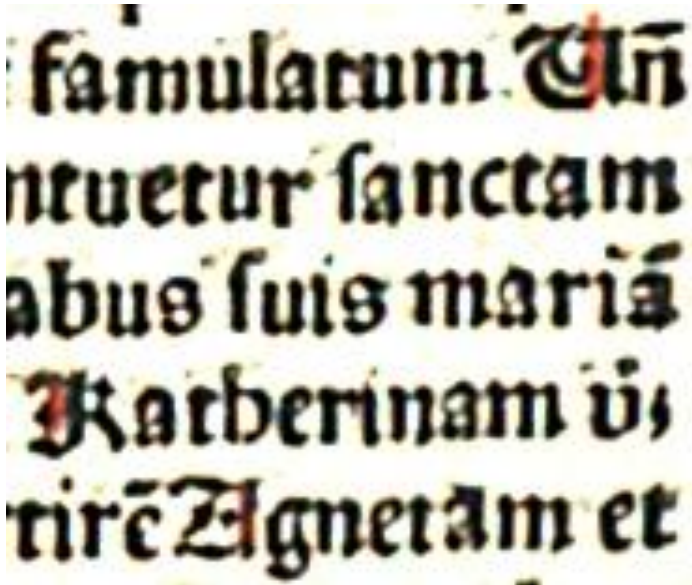 famulatum Un̄
ntuetur ſanctam
abus ſuis mariā
Katherinam v̄ı
tirc̄ Agnetam et